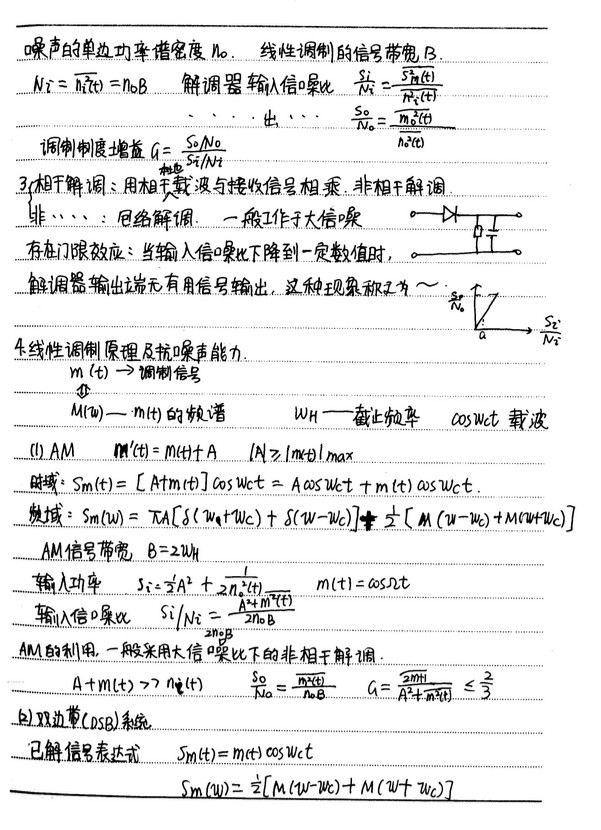 噪声的单边功率谱密度 n₀. 线性调制的信号带宽 B.
Ni = \overline{ni²(t)} = n₀B 解调器输入信噪比 Si/Ni = \overline{S²m(t)}/\overline{n²i(t)}
· · · · 出 · · · S₀/N₀ = \overline{m₀²(t)}/\overline{n₀²(t)}
调制制度增益 G = (S₀/N₀)/(Si/Ni)
3. 相干解调：用相干载波与接收信号相乘. 非相干解调.
非 · · · · ：包络解调. 一般工作于大信噪
存在门限效应：当输入信噪比下降到一定数值时,
解调器输出端无有用信号输出, 这种现象称之为 ~
S₀/N₀
a
Si/Ni
4. 线性调制原理及抗噪声能力.
m(t) → 调制信号
⇕
M(w) — m(t) 的频谱 WH — 截止频率 coswct 载波
(1) AM m'(t) = m(t) + A |A| ≥ |m(t)| max
时域：Sm(t) = [A+m(t)] coswct = A coswct + m(t) coswct.
频域：Sm(w) = πA[δ(w+wc) + δ(w-wc)] + ½[M(w-wc) + M(w+wc)]
AM信号带宽 B = 2WH
输入功率 Si = ½A² + m(t) = cosΩt
输入信噪比 Si/Ni = \overline{A²+m²(t)}/2n₀B
2n₀B
AM的利用, 一般采用大信噪比下的非相干解调.
A + m(t) >> ni(t) S₀/N₀ = \overline{m²(t)}/n₀B G = /A²+\overline{m²(t)} ≤ 2/3
(2) 双边带(DSB)系统
已解信号表达式 Sm(t) = m(t) coswct
Sm(w) = ½[M(w-wc) + M(w+wc)]